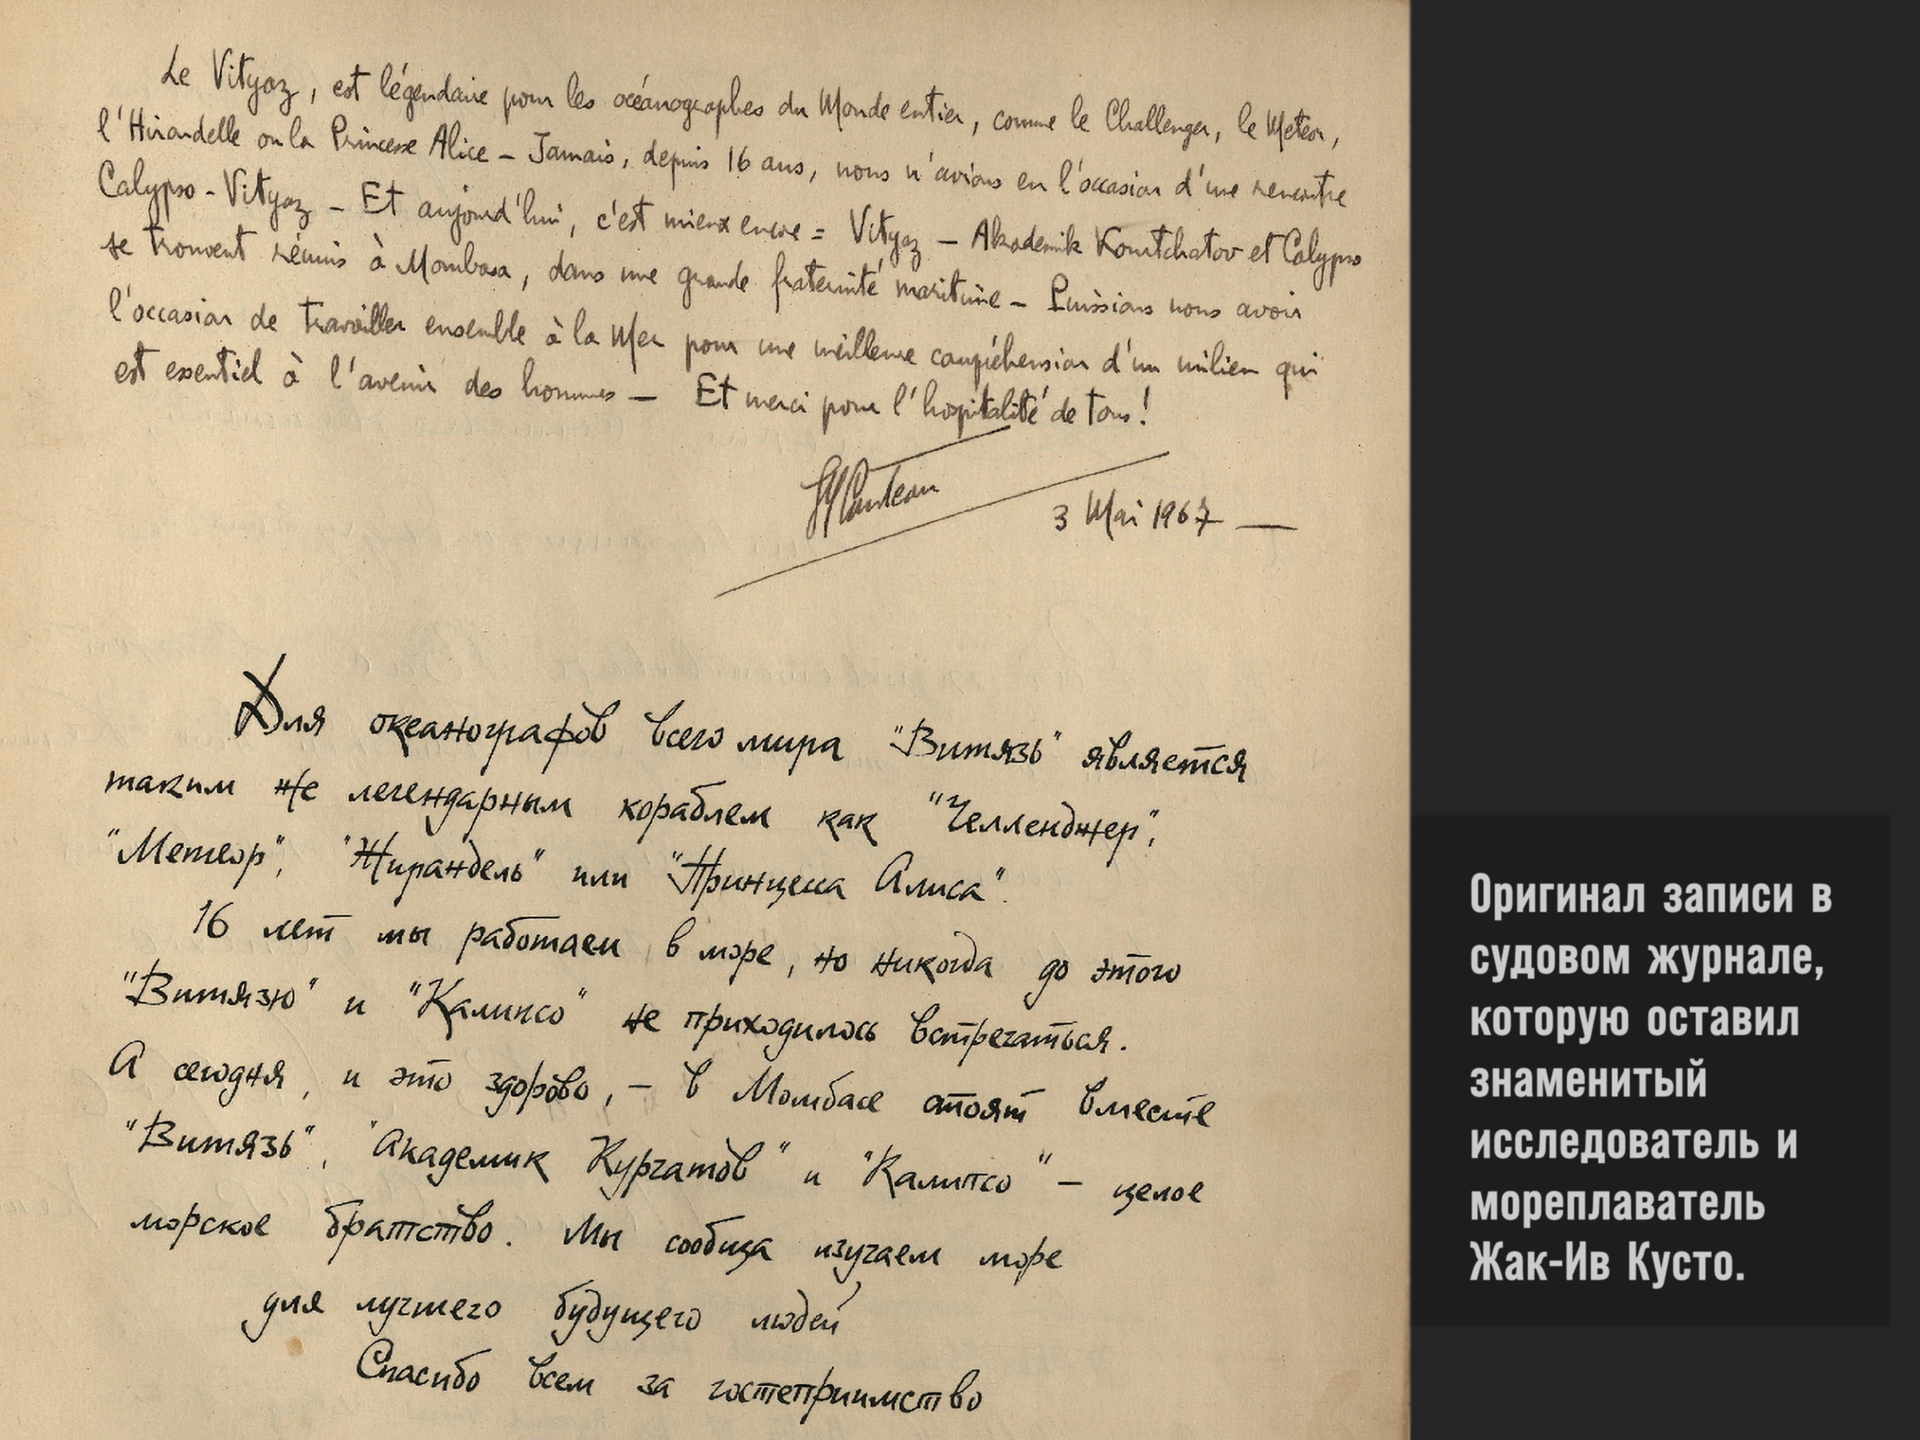 Le Vityaz, est légendaire pour les océanographes du Monde entier, comme le Challenger, le Meteor,
l'Hirondelle ou la Princesse Alice – Jamais, depuis 16 ans, nous n'avions eu l'occasion d'une rencontre
Calypso - Vityaz – Et aujourd'hui, c'est mieux encore = Vityaz – Akademik Kourtchatov et Calypso
se trouvent réunis à Mombasa, dans une grande fraternité maritime – Puissions nous avoir
l'occasion de travailler ensemble à la Mer pour une meilleure compréhension d'un milieu qui
est essentiel à l'avenir des hommes – Et merci pour l'hospitalité de tous!
JYCousteau
3 Mai 1967 —
Для океанографов всего мира "Витязь" является
таким же легендарным кораблем как "Челленджер",
"Метеор", "Жирандель" или "Принцесса Алиса".
16 лет мы работаем в море, но никогда до этого
"Витязю" и "Калипсо" не приходилось встречаться.
А сегодня, и это здорово, – в Момбасе стоят вместе
"Витязь", "Академик Курчатов" и "Калипсо" – целое
морское братство. Мы сообща изучаем море
для лучшего будущего людей
Спасибо всем за гостеприимство
Оригинал записи в
судовом журнале,
которую оставил
знаменитый
исследователь и
мореплаватель
Жак-Ив Кусто.